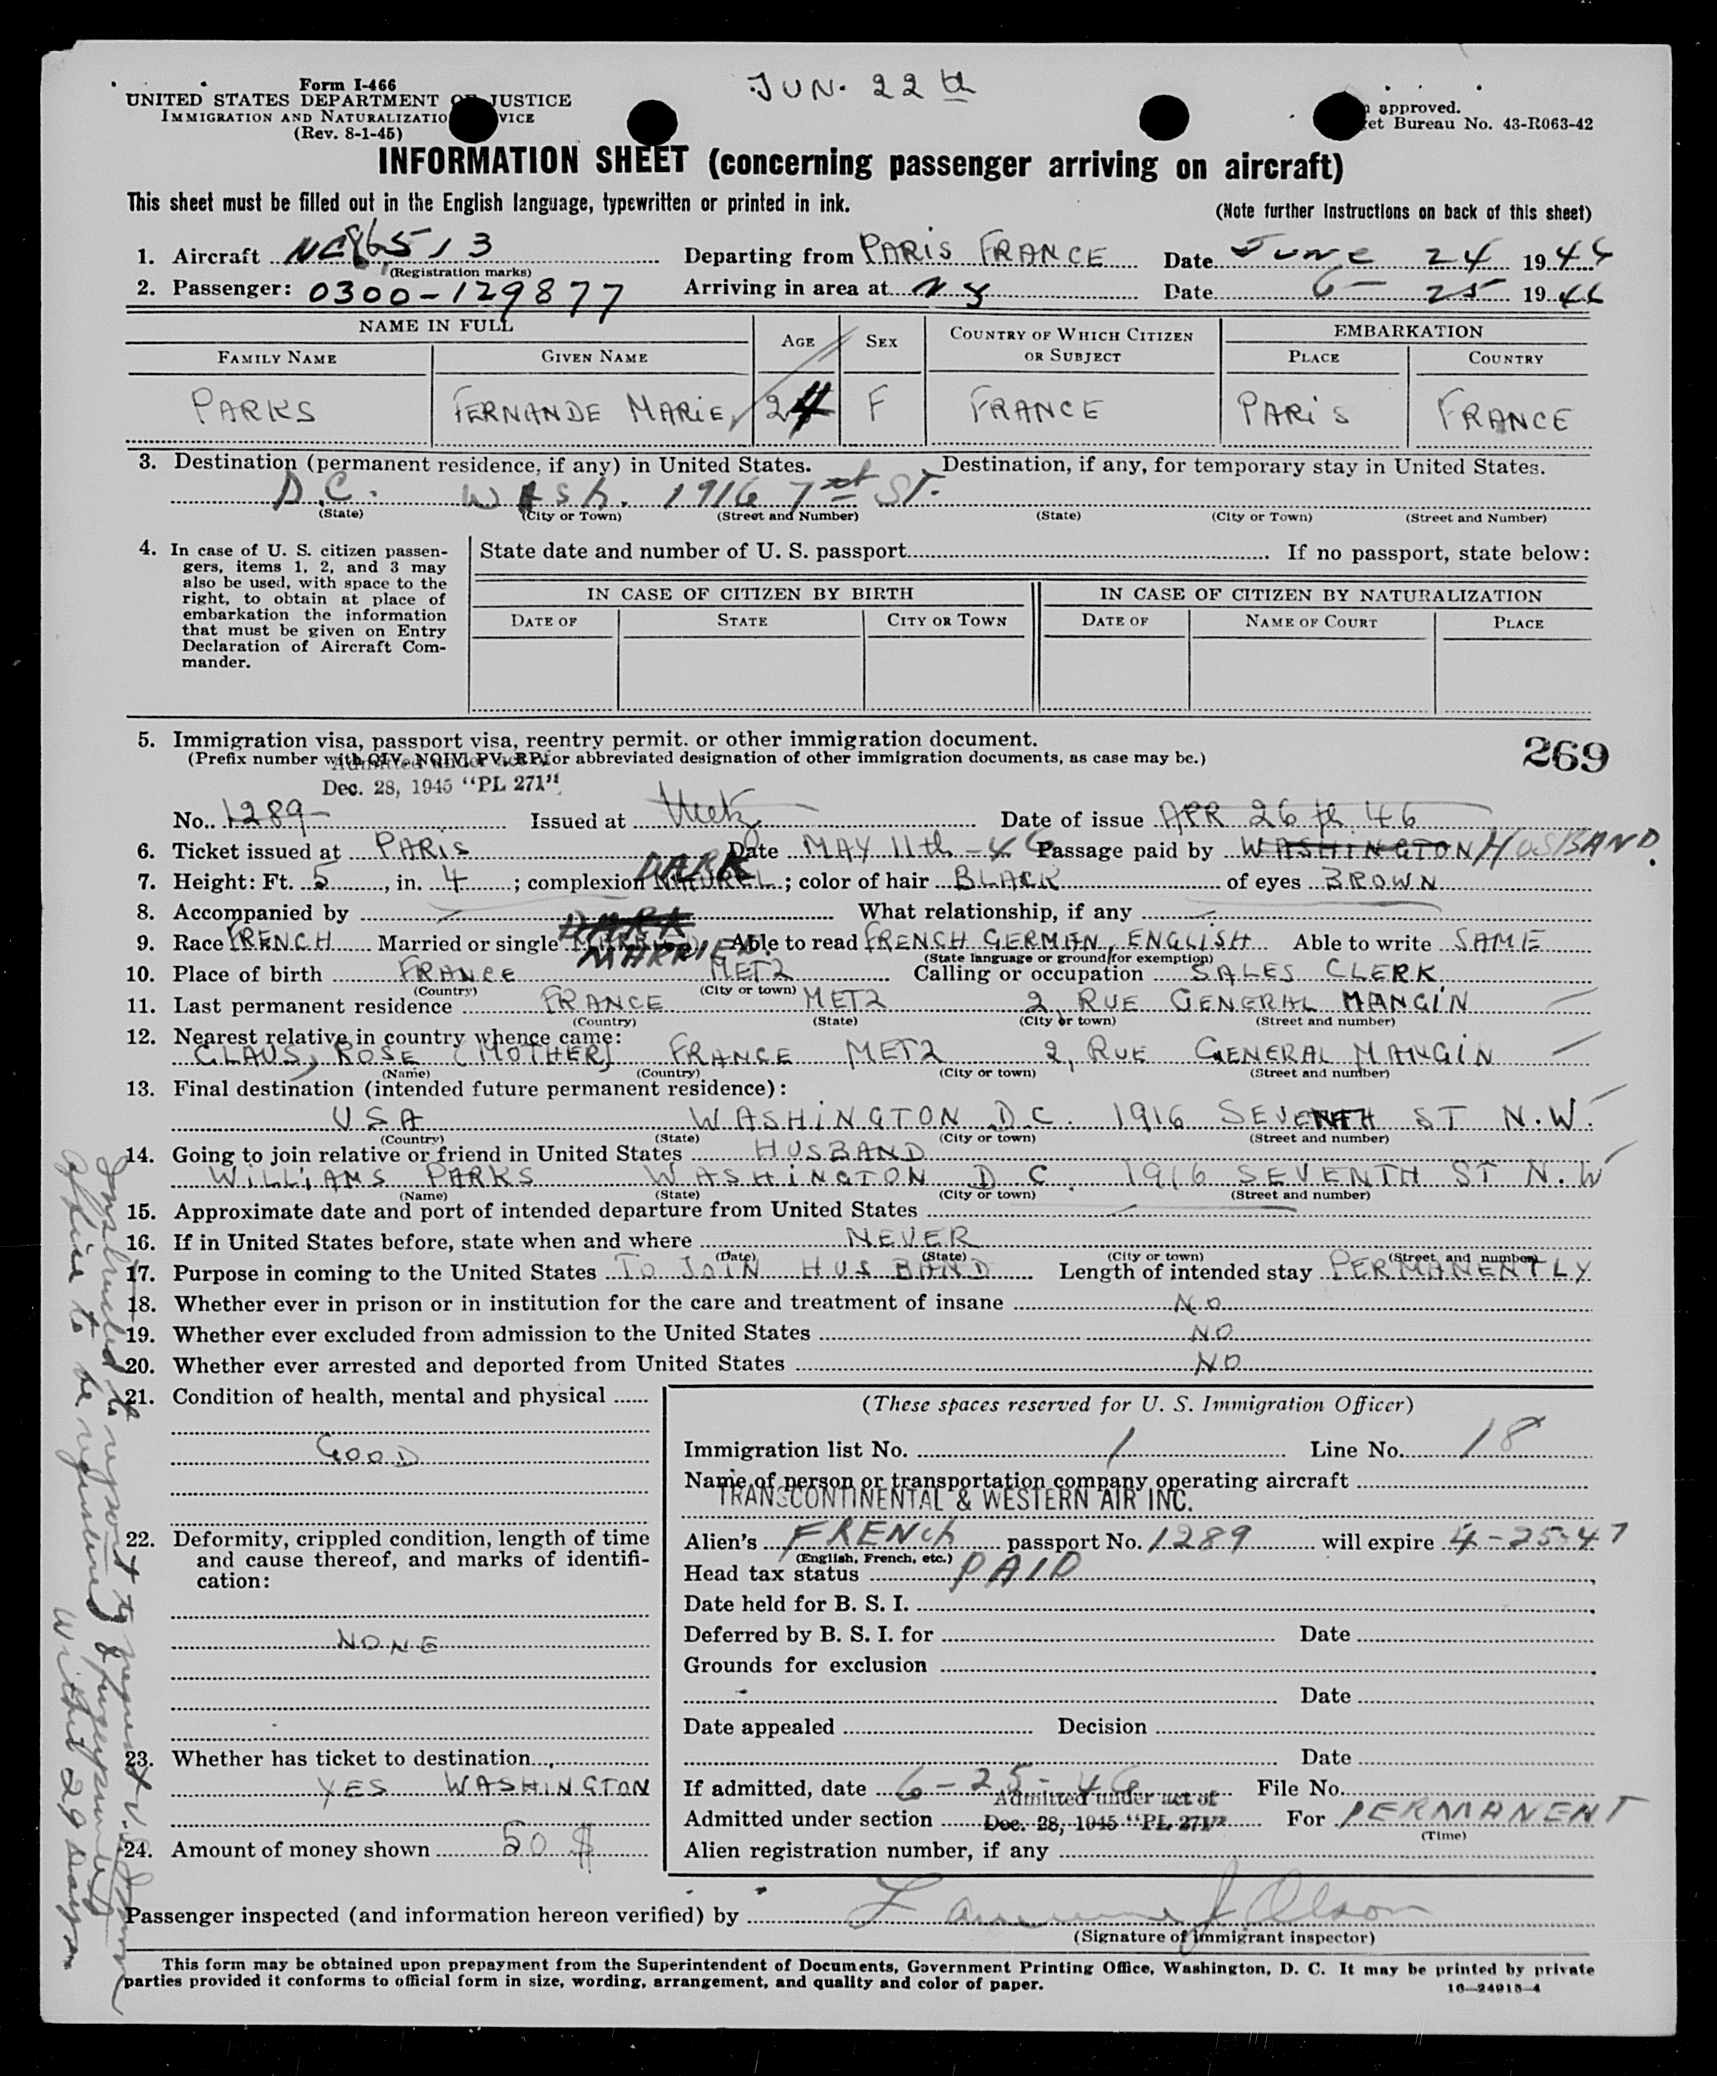 JUN. 22th
Form I-466
UNITED STATES DEPARTMENT OF JUSTICE
IMMIGRATION AND NATURALIZATIO VICE
(Rev. 8-1-45)
approved.
et Bureau No. 43-R063-42
INFORMATION SHEET (concerning passenger arriving on aircraft)
This sheet must be filled out in the English language, typewritten or printed in ink.
(Note further instructions on back of this sheet)
1. Aircraft NC86513 Departing from PARIS FRANCE Date June 24 1946
(Registration marks)
2. Passenger: 0300-129877 Arriving in area at NY Date 6-25 1946
NAME IN FULL AGE SEX COUNTRY OF WHICH CITIZEN OR SUBJECT EMBARKATION
FAMILY NAME GIVEN NAME PLACE COUNTRY
PARKS FERNANDE MARIE 24 F FRANCE PARIS FRANCE
3. Destination (permanent residence, if any) in United States. Destination, if any, for temporary stay in United States.
D.C. Wash. 1916 7 ST.
(State) (City or Town) (Street and Number) (State) (City or Town) (Street and Number)
4. In case of U. S. citizen passengers, items 1, 2, and 3 may also be used, with space to the right, to obtain at place of embarkation the information that must be given on Entry Declaration of Aircraft Commander.
State date and number of U. S. passport If no passport, state below:
IN CASE OF CITIZEN BY BIRTH IN CASE OF CITIZEN BY NATURALIZATION
DATE OF STATE CITY OR TOWN DATE OF NAME OF COURT PLACE
5. Immigration visa, passport visa, reentry permit, or other immigration document.
(Prefix number with QIV, NQIV, PV, RP, or abbreviated designation of other immigration documents, as case may be.)
269
Admitted under act of
Dec. 28, 1945 "PL 271"
No. 1289 Issued at Metz Date of issue APR 26th 46
6. Ticket issued at PARIS Date MAY 11th-46 Passage paid by WASHINGTON HUSBAND.
7. Height: Ft. 5, in. 4; complexion NATUREL DARK; color of hair BLACK of eyes BROWN
8. Accompanied by What relationship, if any
DARK
9. Race FRENCH Married or single MARRIED Able to read FRENCH GERMAN, ENGLISH Able to write SAME
(State language or ground for exemption)
10. Place of birth FRANCE METZ Calling or occupation SALES CLERK
(Country) (City or town)
11. Last permanent residence FRANCE METZ 2, RUE GENERAL MANGIN
(Country) (State) (City or town) (Street and number)
12. Nearest relative in country whence came:
CLAUS, ROSE (MOTHER) FRANCE METZ 2, RUE GENERAL MANGIN
(Name) (Country) (City or town) (Street and number)
13. Final destination (intended future permanent residence):
USA WASHINGTON D.C. 1916 SEVENTH ST N.W.
(Country) (State) (City or town) (Street and number)
14. Going to join relative or friend in United States HUSBAND
WILLIAMS PARKS WASHINGTON D C. 1916 SEVENTH ST N.W
(Name) (State) (City or town) (Street and number)
15. Approximate date and port of intended departure from United States
16. If in United States before, state when and where NEVER
(Date) (State) (City or town) (Street and number)
17. Purpose in coming to the United States TO JOIN HUSBAND Length of intended stay PERMANENTLY
18. Whether ever in prison or in institution for the care and treatment of insane NO
19. Whether ever excluded from admission to the United States NO
20. Whether ever arrested and deported from United States NO
21. Condition of health, mental and physical
GOOD
22. Deformity, crippled condition, length of time
and cause thereof, and marks of identification:
NONE
23. Whether has ticket to destination
YES WASHINGTON
24. Amount of money shown 50 $
(These spaces reserved for U. S. Immigration Officer)
Immigration list No. 1 Line No. 18
Name of person or transportation company operating aircraft
TRANSCONTINENTAL & WESTERN AIR INC.
Alien's FRENCH passport No. 1289 will expire 4-25-47
(English, French, etc.)
Head tax status PAID
Date held for B. S. I.
Deferred by B. S. I. for Date
Grounds for exclusion
Date
Date appealed Decision
Date
If admitted, date 6-25-46 File No.
Admitted under act of
Admitted under section Dec. 28, 1945 "PL 271" For PERMANENT
(Time)
Alien registration number, if any
Passenger inspected (and information hereon verified) by Olson
(Signature of immigrant inspector)
This form may be obtained upon prepayment from the Superintendent of Documents, Government Printing Office, Washington, D. C. It may be printed by private
parties provided it conforms to official form in size, wording, arrangement, and quality and color of paper.
16-24915-4
Instructed to report to nearest U.S. Imm
office to be registered & fingerprinted
Within 29 days